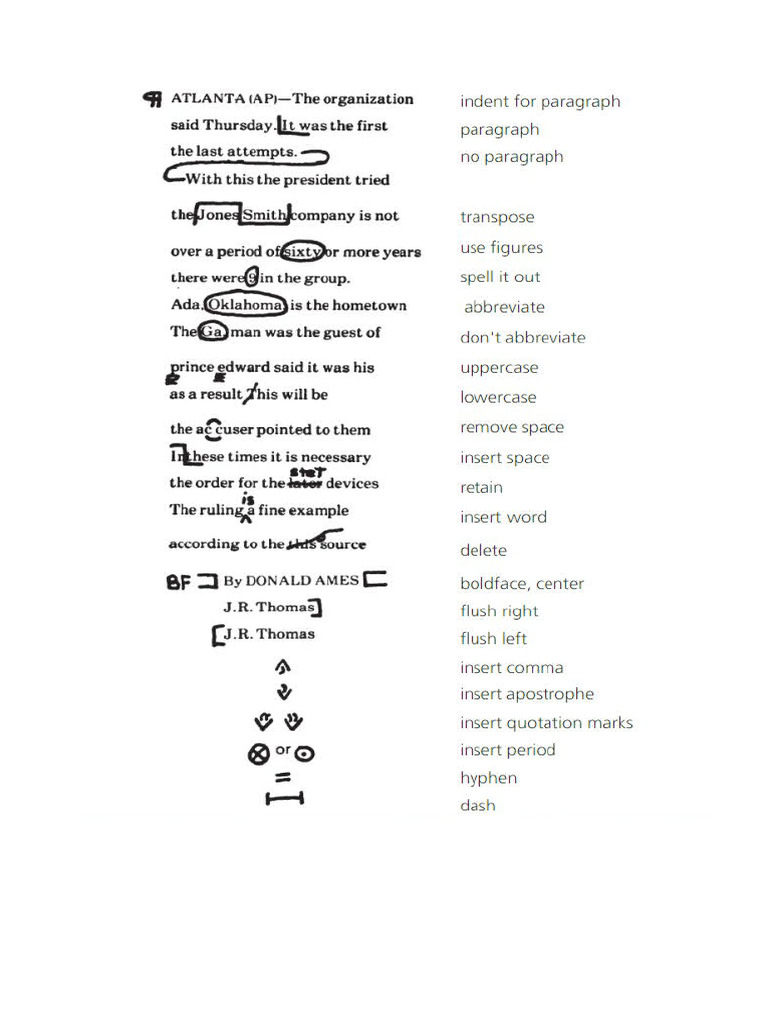 ¶ ATLANTA (AP)—The organization indent for paragraph
said Thursday. It was the first paragraph
the last attempts. no paragraph
With this the president tried
the Jones Smith company is not transpose
over a period of sixty or more years use figures
there were 9 in the group. spell it out
Ada, Oklahoma, is the hometown abbreviate
The Ga. man was the guest of don't abbreviate
prince edward said it was his uppercase
as a result This will be lowercase
the ac cuser pointed to them remove space
Inthese times it is necessary insert space
stet
the order for the later devices retain
is
The ruling a fine example insert word
according to the this source delete
BF ] By DONALD AMES [ boldface, center
J.R. Thomas ] flush right
[ J.R. Thomas flush left
insert comma
insert apostrophe
insert quotation marks
or insert period
= hyphen
dash